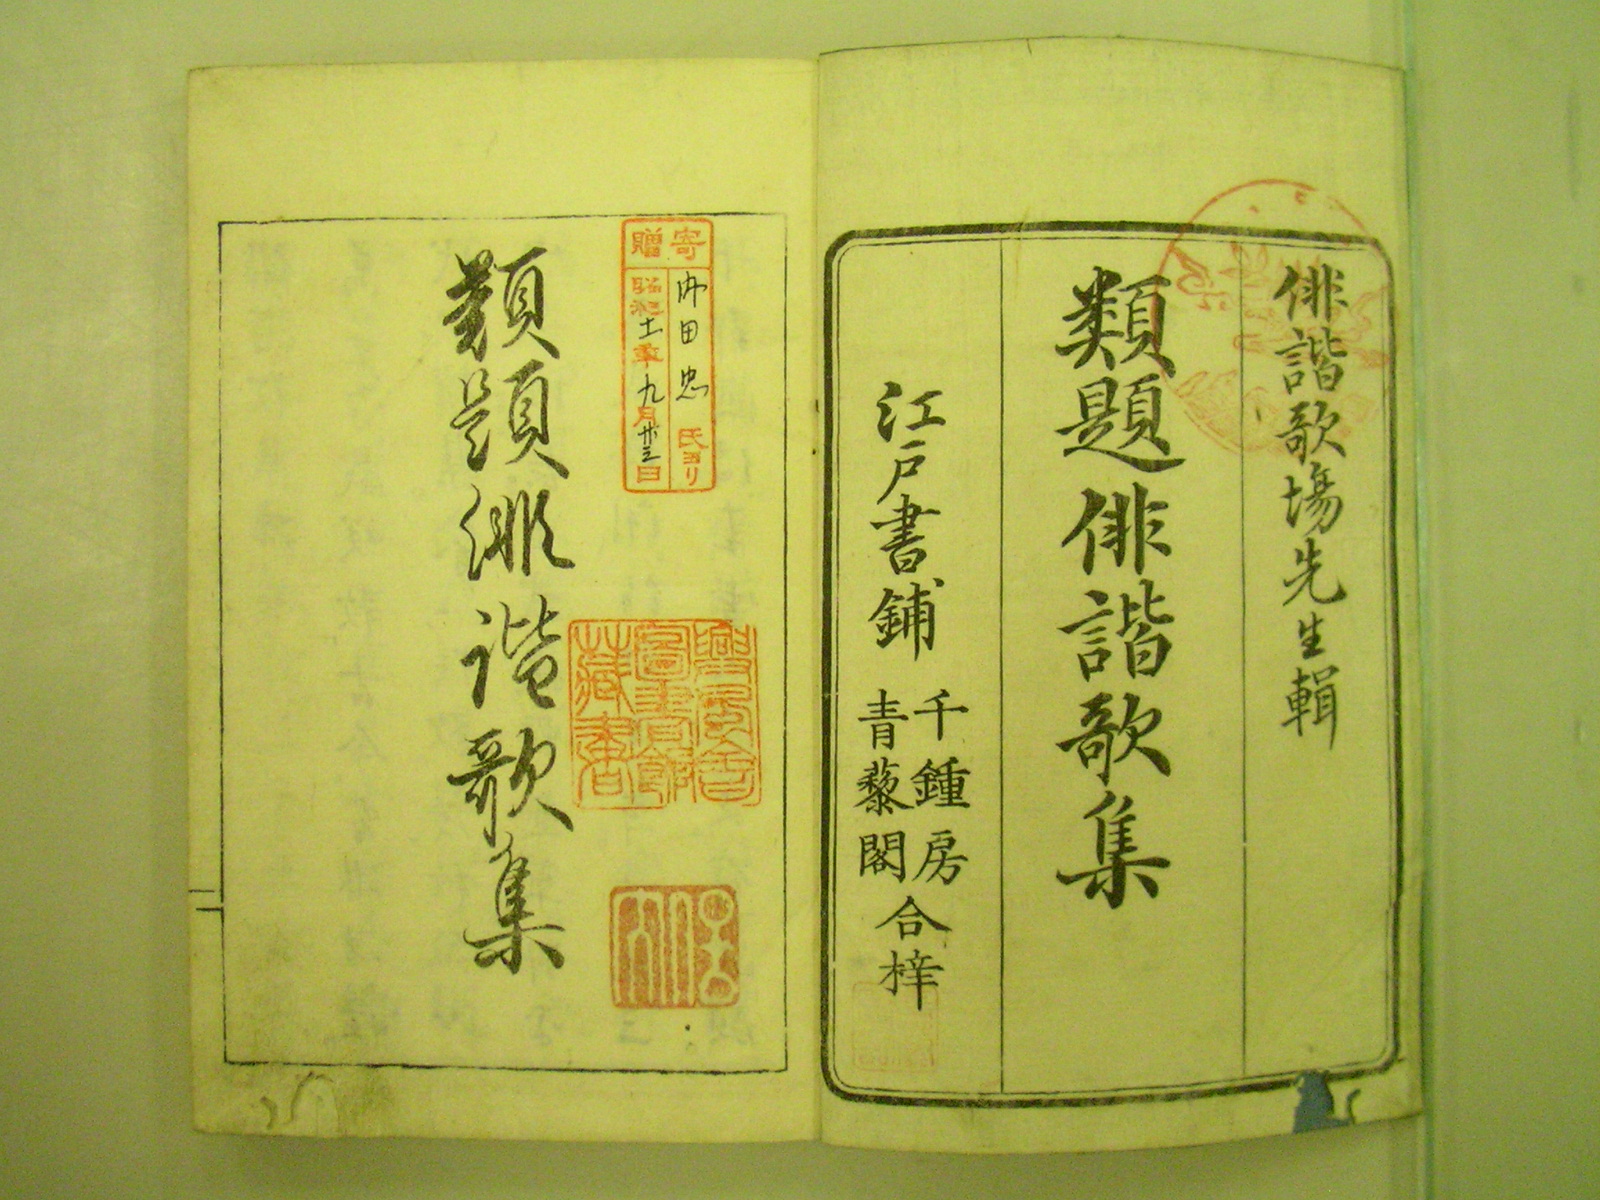 俳諧歌場先生輯
類題俳諧歌集
江戸書鋪
千鍾房
青藜閣
合梓
寄贈
内田忠氏ヨリ
昭和十一年九月廿三日
類題俳諧歌集
圖書館
藏書